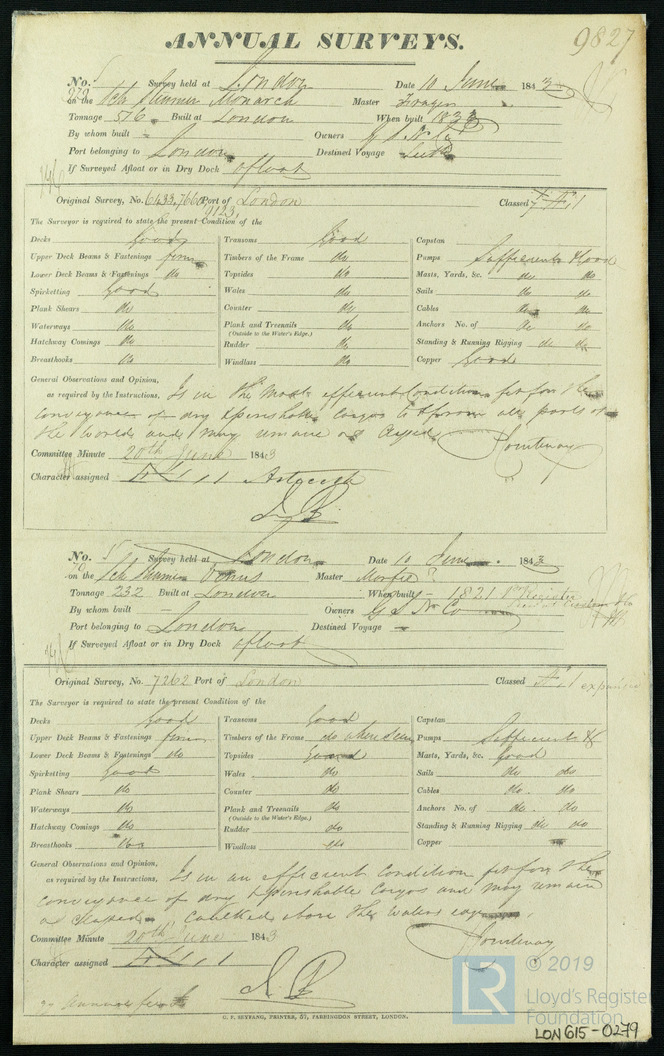 ANNUAL SURVEYS.
9827
No. Survey held at London Date 10 June 1843
on the Monarch Master Frazer
Tonnage 516 Built at London When built 1833
By whom built - Owners G S N Co
Port belonging to London Destined Voyage Leith
If Surveyed Afloat or in Dry Dock afloat
Original Survey, No. 6433, 7660, 9123, Port of London Classed
The Surveyor is required to state the present Condition of the
Decks Good Transoms Good Capstan
Upper Deck Beams & Fastenings firm Timbers of the Frame do Pumps Sufficient & Good
Lower Deck Beams & Fastenings do Topsides do Masts, Yards, &c. do do
Spirketting Good Wales do Sails do do
Plank Shears do Counter do Cables do do
Waterways do Plank and Treenails do Anchors No. of do do
(Outside to the Water's Edge.)
Hatchway Comings do Rudder do Standing & Running Rigging do do
Breasthooks do Windlass do Copper Good
General Observations and Opinion, Is in the most efficient condition fit for the
as required by the Instructions. conveyance of dry & perishable cargos to & from all parts of
the World and may remain as Classed. Courtenay
Committee Minute 20th June 1843
Character assigned
No. Survey held at London Date 10 June 1843
on the Venus Master
Tonnage 232 Built at London When built - 1821
By whom built - Owners G S N Co
Port belonging to London Destined Voyage -
If Surveyed Afloat or in Dry Dock afloat
Original Survey, No. 7262 Port of London Classed
The Surveyor is required to state the present Condition of the
Decks Good Transoms Good Capstan
Upper Deck Beams & Fastenings firm Timbers of the Frame do where seen Pumps Sufficient &
Lower Deck Beams & Fastenings do Topsides Good Masts, Yards, &c. Good
Spirketting Good Wales do Sails do do
Plank Shears do Counter do Cables do do
Waterways do Plank and Treenails do Anchors No. of do do
(Outside to the Water's Edge.)
Hatchway Comings do Rudder do Standing & Running Rigging do do
Breasthooks do Windlass do Copper
General Observations and Opinion, Is in an efficient condition fit for the
as required by the Instructions. conveyance of dry & perishable cargos and may remain
as Classed. Caulked above the waters edge.
Committee Minute 20th June 1843 Courtenay
Character assigned
C. F. SEYFANG, PRINTER, 57, FARRINGDON STREET, LONDON.
LR © 2019
Lloyd's Register
Foundation
LON615-0279